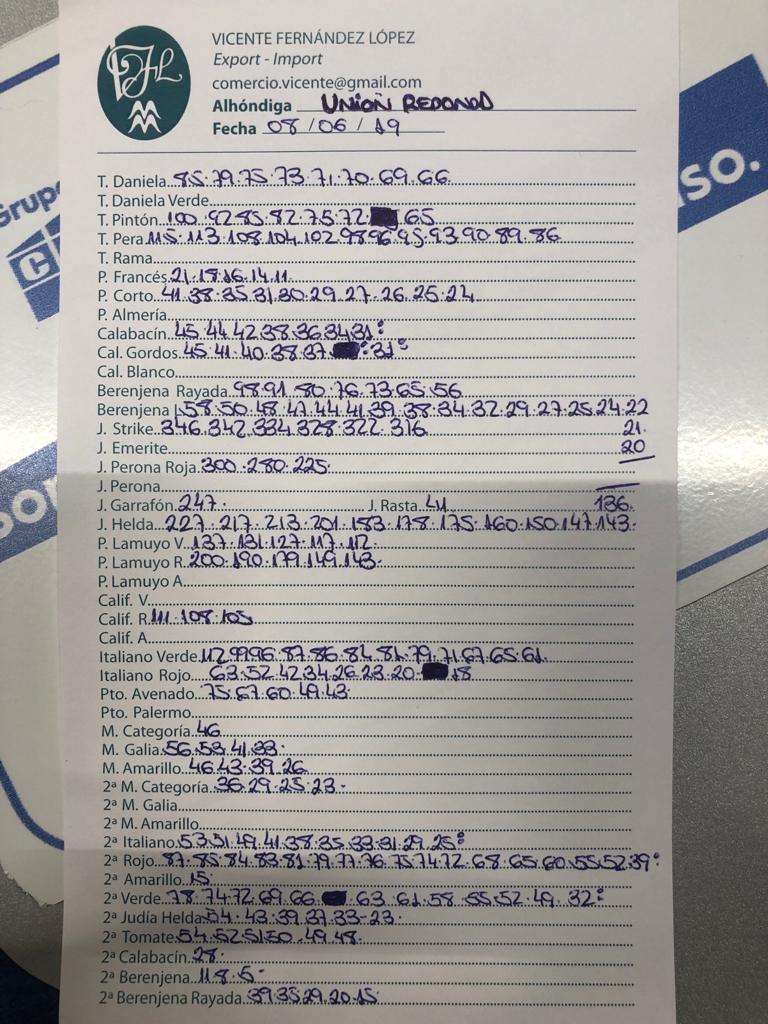 VICENTE FERNÁNDEZ LÓPEZ
Export - Import
comercio.vicente@gmail.com
Alhóndiga UNION REDONDO
Fecha 08/06/19
T. Daniela 85.79.75.73.71.70.69.66
T. Daniela Verde
T. Pintón 100.92.85.82.75.72. 65
T. Pera 115.113.108.104.102.98.96.95.93.90.89.86
T. Rama
P. Francés 21.18.16.14.11
P. Corto 41.38.35.31.30.29.27.26.25.24
P. Almería
Calabacín 45.44.42.38.36.34.31:
Cal. Gordos 45.41.40.38.37. :31:
Cal. Blanco
Berenjena Rayada 98.91.80.76.73.65.56
Berenjena L 58.50.48.47.44.41.39.38.34.32.29.27.25.24.22
J. Strike 346.342.334.328.322.316 21.
J. Emerite 20
J. Perona Roja 300.280.225
J. Perona
J. Garrafón 247. J. Rasta 136.
J. Helda 227.217.213.201.183.178.175.160.150.147.143.
P. Lamuyo V. 137.131.127.117.112
P. Lamuyo R. 200.190.179.149.143
P. Lamuyo A
Calif. V
Calif. R 111.108.105
Calif. A
Italiano Verde 112.99.96.87.86.84.81.79.71.67.65.61
Italiano Rojo 63.52.42.34.26.23.20. 18
Pto. Avenado 75.67.60.49.43
Pto. Palermo
M. Categoría 46
M. Galia 56.53.41.33.
M. Amarillo 46.43.39.26
2ª M. Categoría 36.29.25.23.
2ª M. Galia
2ª M. Amarillo
2ª Italiano 53.51.49.41.38.35.33.31.29.25:
2ª Rojo 87.85.84.83.81.79.77.76.75.74.72.68.65.60.55.52.39:
2ª Amarillo 15
2ª Verde 78.74.72.69.66. 63.61.58.55.52.49.32:
2ª Judía Helda 54.43.39.37.33-23.
2ª Tomate 54.52.51.50.49.48
2ª Calabacín 28
2ª Berenjena 11.8.5.
2ª Berenjena Rayada 39.35.29.20.15
Grupo
C
so.